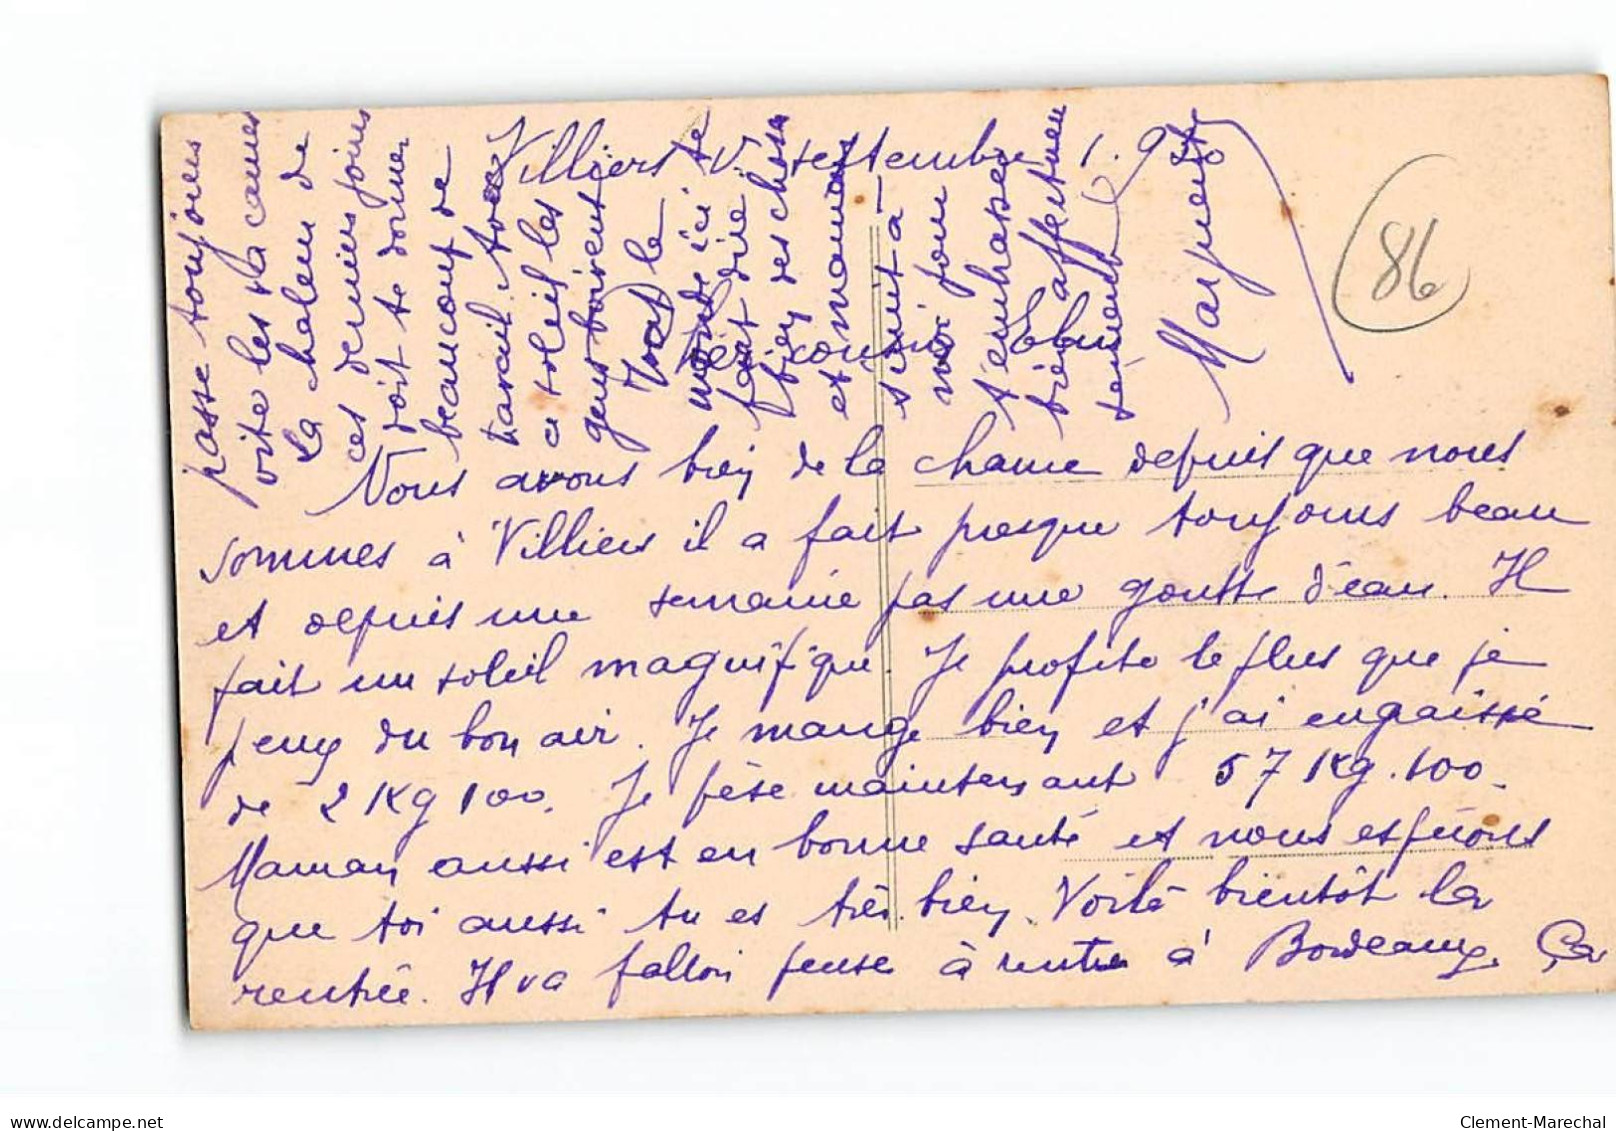 Villiers septembre 1.9
Cher cousin
Nous avons bien de la chance depuis que nous
sommes à Villiers il a fait presque toujours beau
et depuis une semaine pas une goutte d'eau. Il
fait un soleil magnifique. Je profite le plus que je
peux du bon air. Je mange bien et j'ai engraissé
de 2 Kg 100. Je pèse maintenant 57 Kg.100.
Maman aussi est en bonne santé et nous espérons
que toi aussi tu es très bien. Voilà bientôt la
rentrée. Il va falloir penser à rentrer à Bordeaux. Ça
passe toujours
vite les vacances
La chaleur de
ces derniers jours
doit te donner
beaucoup de
travail. Avec
ce soleil les
gens boivent
Tout le
monde ici te
fait dire
bien des choses
et maman
se joint à
moi pour
t'embrasser
bien affectueu
sement
86
delcampe.net
Clement-Marechal